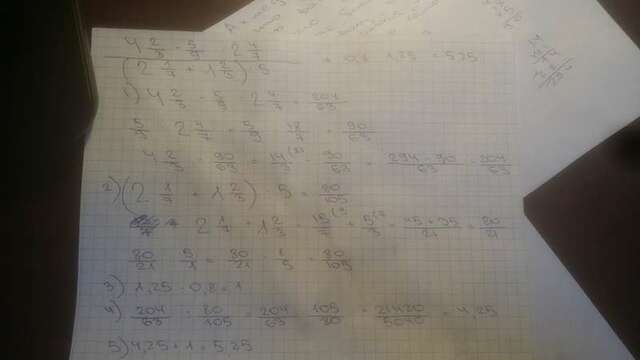 4 2/3 - 5/9 · 2 4/7
(2 1/7 + 1 2/3) : 5 + 0,8 · 1,25 = 5,25
1) 4 2/3 - 5/9 · 2 4/7 = 204/63
5/9 · 2 4/7 = 5/9 · 18/7 = 90/63
4 2/3 - 90/63 = 14/3 (21 - 90/63 = 294-90/63 = 204/63
2) (2 1/7 + 1 2/3) : 5 = 80/105
2 1/7 + 1 2/3 = 15/7 (3 + 5/3 (7 = 45+35/21 = 80/21
80/21 : 5/1 = 80/21 · 1/5 = 80/105
3) 1,25 · 0,8 = 1
4) 204/63 : 80/105 = 204/63 · 105/80 = 21420/5040 = 4,25
5) 4,25 + 1 = 5,25